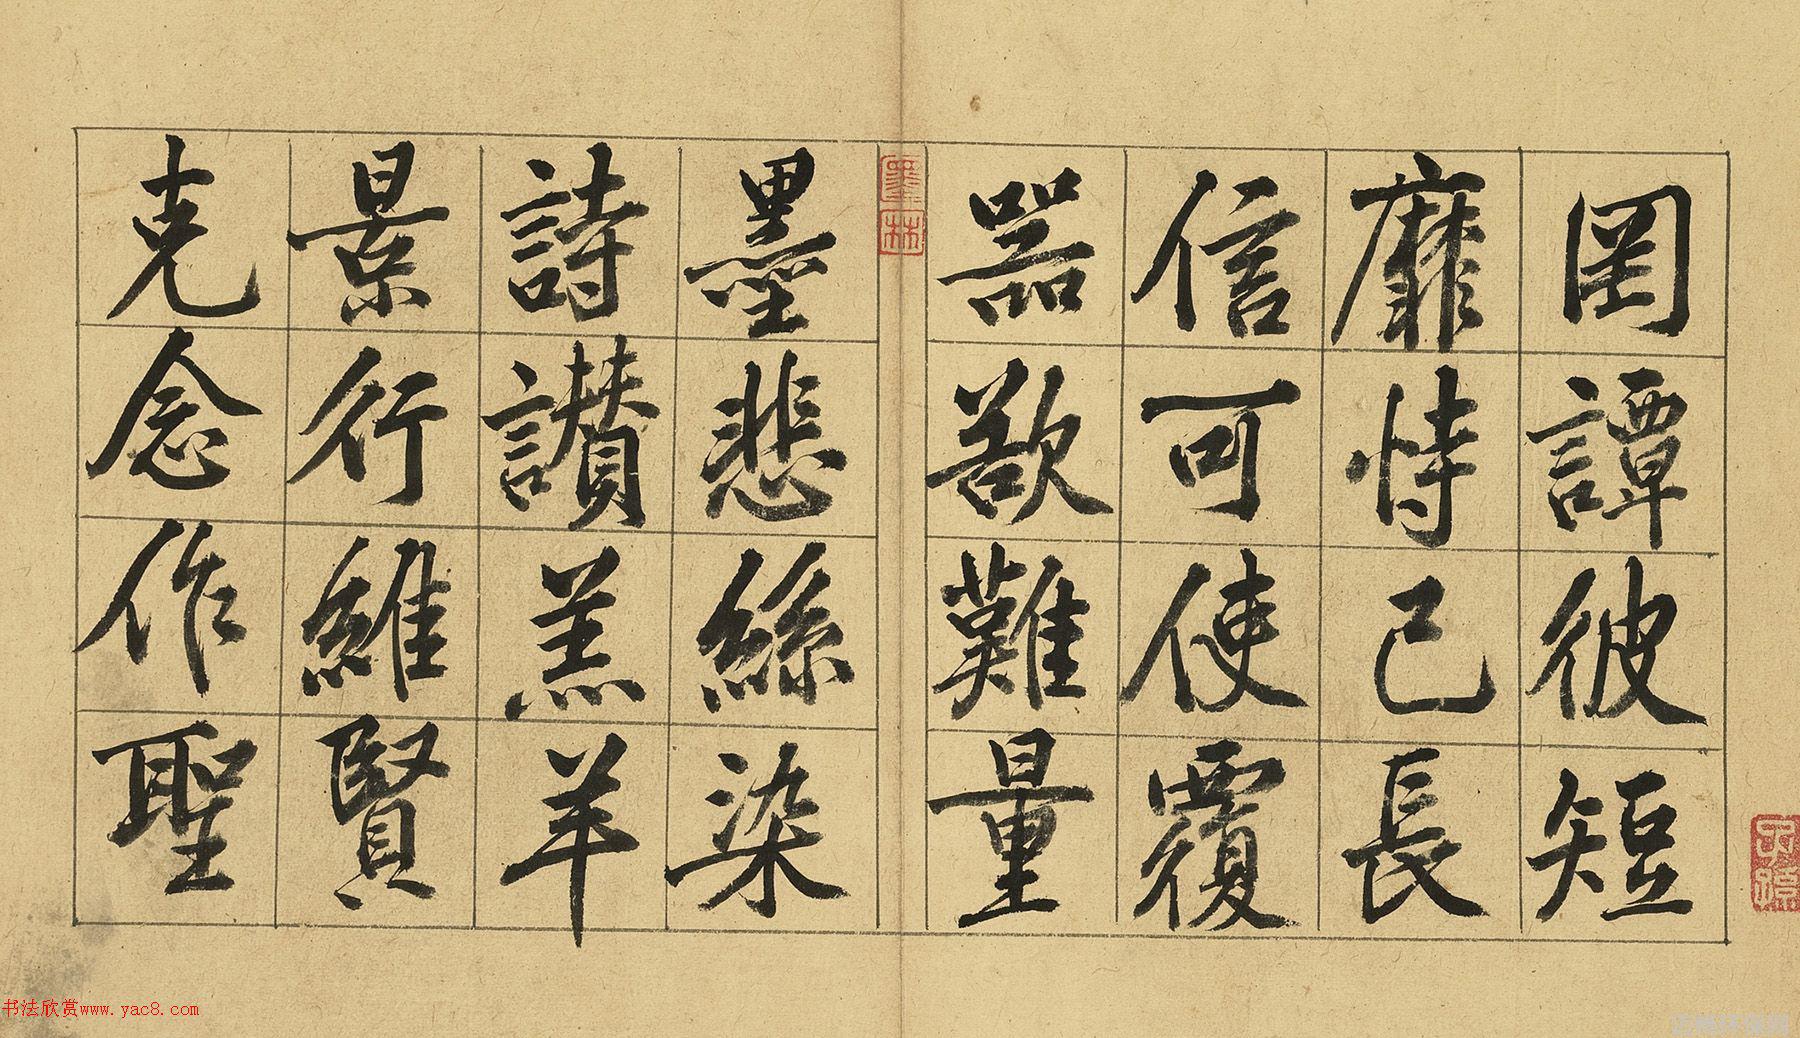 罔譚彼短
靡恃己長
信可使覆
器欲難量
墨悲絲染
詩讃羔羊
景行維賢
克念作聖
墨林
书法欣赏www.yac8.com